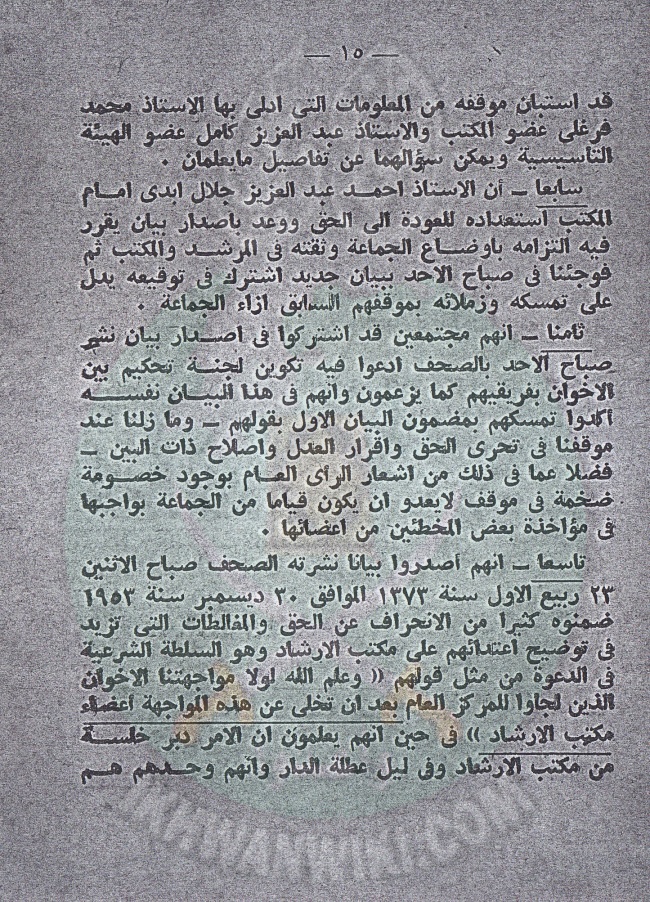 — ١٥ —
قد استبان موقفه من المعلومات التى ادلى بها الاستاذ محمد
فرغلى عضو المكتب والاستاذ عبد العزيز كامل عضو الهيئة
التاسيسية ويمكن سؤالهما عن تفاصيل مايعلمان .
سابعا — أن الاستاذ احمد عبد العزيز جلال ابدى امام
المكتب استعداده للعودة الى الحق ووعد باصدار بيان يقرر
فيه التزامه باوضاع الجماعة وثقته فى المرشد والمكتب ثم
فوجئنا فى صباح الاحد ببيان جديد اشترك فى توقيعه يدل
على تمسكه وزملائه بموقفهم السابق ازاء الجماعة .
ثامنا — انهم مجتمعين قد اشتركوا فى اصدار بيان نشر
صباح الاحد بالصحف ادعوا فيه تكوين لجنة تحكيم بين
الاخوان بفريقيهم كما يزعمون وانهم فى هذا البيان نفسه
أكدوا تمسكهم بمضمون البيان الاول بقولهم — وما زلنا عند
موقفنا فى تحرى الحق واقرار العدل واصلاح ذات البين —
فضلا عما فى ذلك من اشعار الرأى العام بوجود خصومة
ضخمة فى موقف لايعدو ان يكون قياما من الجماعة بواجبها
فى مؤاخذة بعض المخطئين من اعضائها .
تاسعا — انهم أصدروا بيانا نشرته الصحف صباح الاثنين
٢٣ ربيع الاول سنة ١٣٧٣ الموافق ٣٠ ديسمبر سنة ١٩٥٣
ضمنوه كثيرا من الانحراف عن الحق والمغالطات التى تزيد
فى توضيح اعتدائهم على مكتب الارشاد وهو السلطة الشرعية
فى الدعوة من مثل قولهم (( وعلم الله لولا مواجهتنا الاخوان
الذين لجاوا للمركز العام بعد ان تخلى عن هذه المواجهة أعضاء
مكتب الارشاد )) فى حين انهم يعلمون ان الامر دبر خلسة
من مكتب الارشاد وفى ليل عطلة الدار وانهم وحدهم هم
IKHWANWIKI.COM